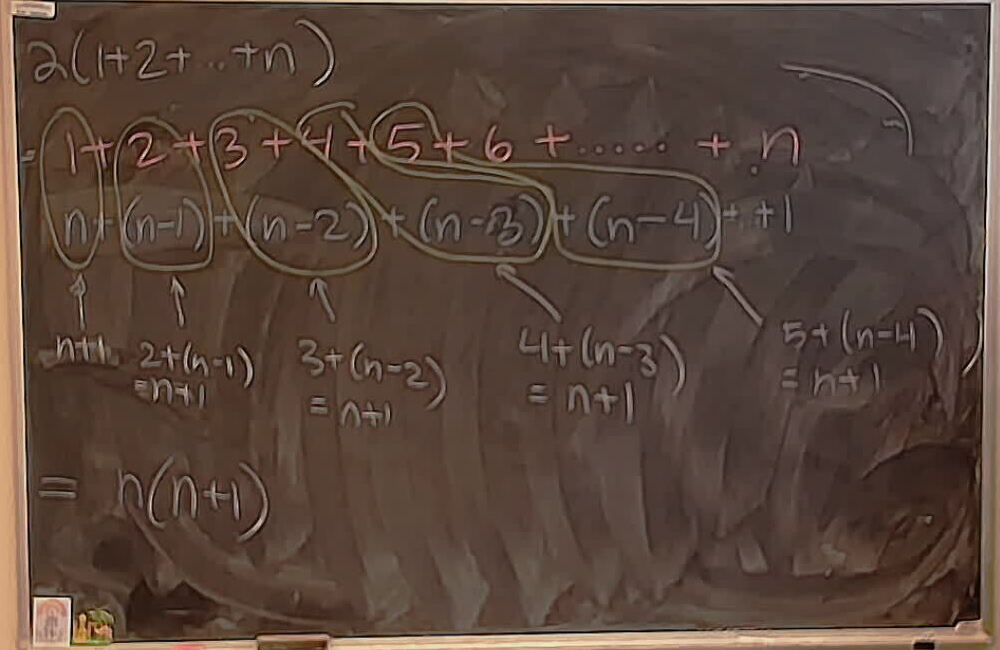 2(1+2+...+n)
= 1+2+3+4+5+6 +.....+ n
n+(n-1)+(n-2)+(n-3)+(n-4)+ +1
n+1 2+(n-1) 3+(n-2) 4+(n-3) 5+(n-4)
=n+1 =n+1 =n+1 =n+1
= n(n+1)